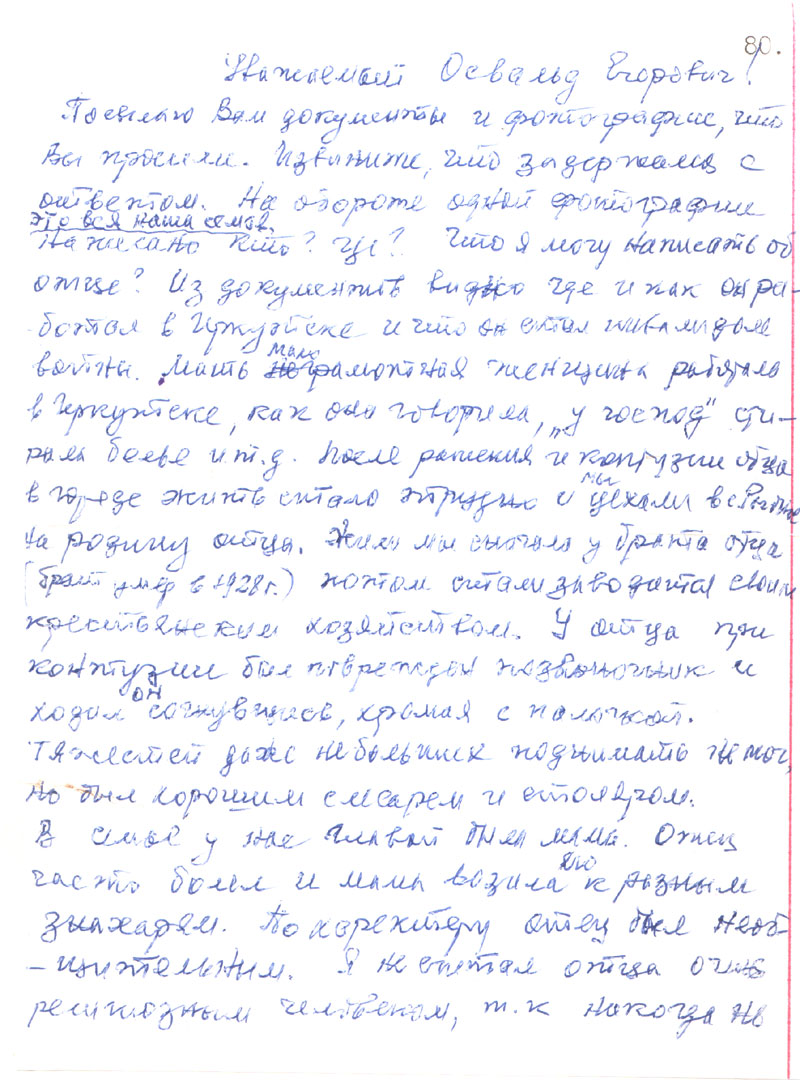 80.
Уважаемый Освальд Егорович!
Посылаю Вам документы и фотографие, что
Вы просили. Извините, что задержался с
ответом. На обороте одной фотографии
это вся наша семья.
написано кто? где? Что я могу написать об
отце? Из документов видно где и как он ра-
ботал в Иркутске и что он стал инвалидом
войны. Мать мало грамотная женщина работала
в Иркутске, как она говорила, "у господ" сти-
рала белье и т.д. После ранения и контузии отца
в городе жить стало трудно и мы уехали в
на родину отца. Жили мы сначала у брата отца
(брат умер в 1928 г.) потом стали заводится своим
крестьянским хозяйством. У отца при
контузии был поврежден позвоночник и
ходил он согнувшись, хромая с палочкой.
Тяжестей даже небольших поднимать не мог,
но был хорошим слесарем и столяром.
В семье у нас главой была мама. Отец
часто болел и мама возила его к разным
знахарям. По характеру отец был необ-
-щительным. Я не считал отца очень
религиозным человеком, т.к никогда не